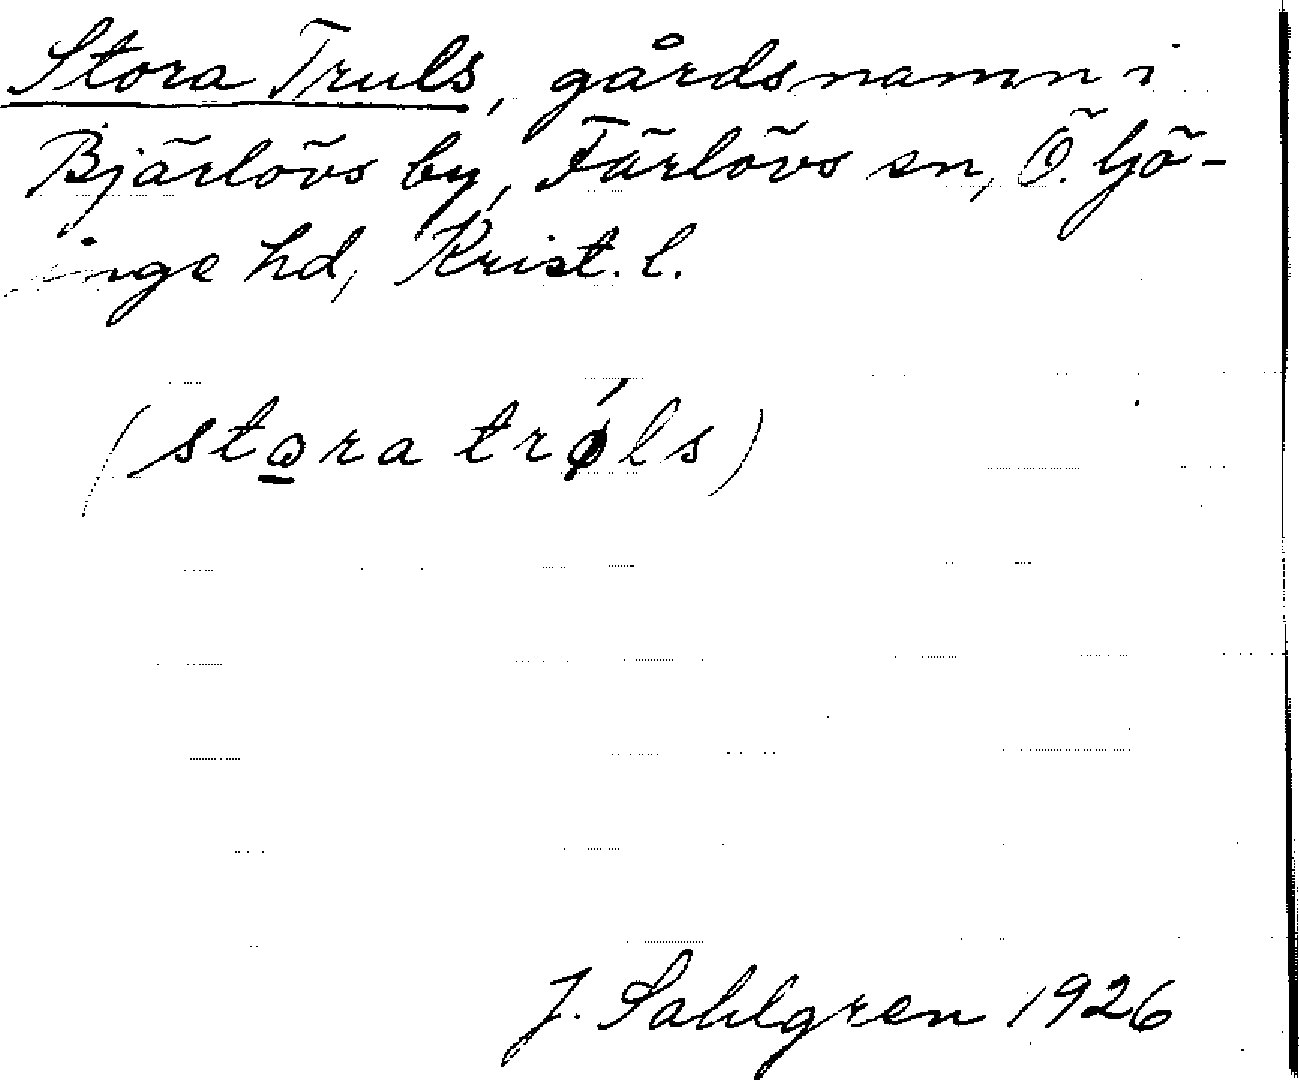 Stora Truls, gårdsnamn i
Bjärlövs by, Färlövs sn, Ö. Gö-
inge hd, Krist. l.
(stora trǿls)
J. Sahlgren 1926